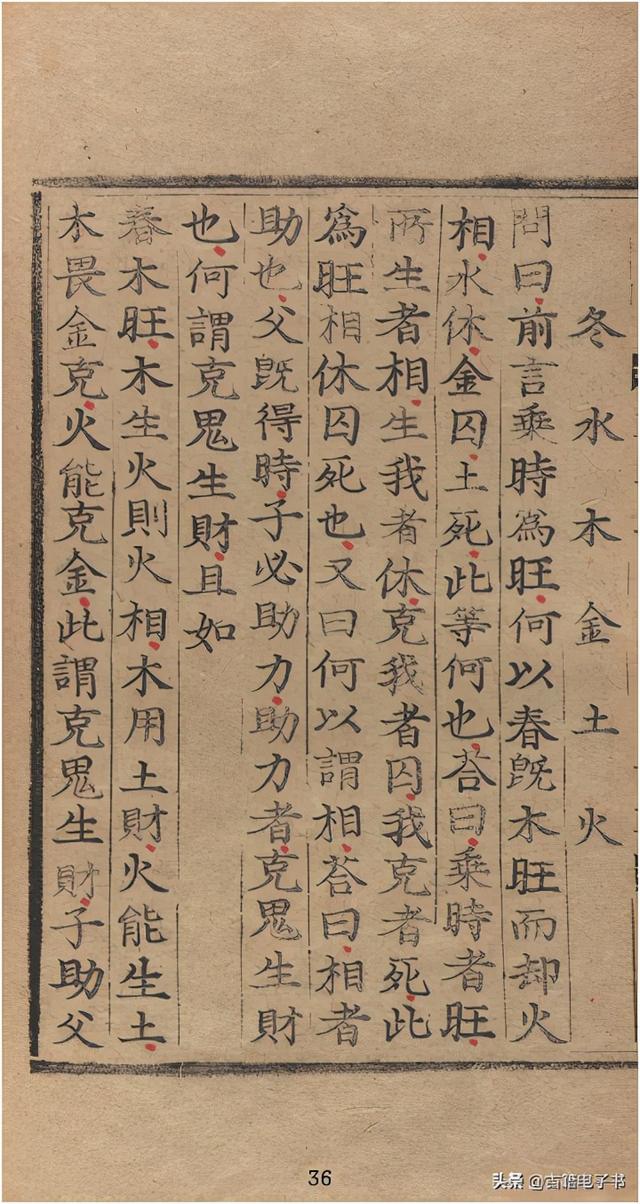 冬 水 木 金 土 火
問曰前言乘時爲旺何以春旣木旺而却火
相水休金囚土死此等何也荅曰乘時者旺
所生者相生我者休克我者囚我克者死此
爲旺相休囚死也又曰何以謂相荅曰相者
助也父旣得時子必助力助力者克鬼生財
也何謂克鬼生財且如
春木旺木生火則火相木用土財火能生土
木畏金克火能克金此謂克鬼生財子助父
36
头条 @古籍电子书